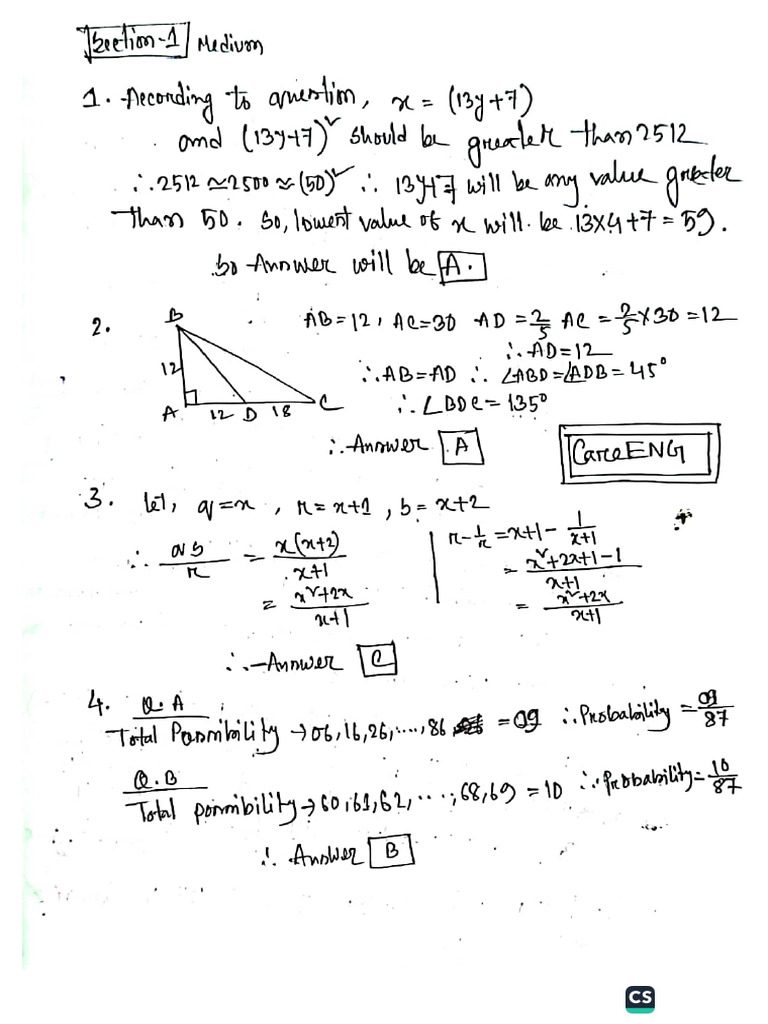 Section-1 Medium
1. According to question, x = (13y+7)
and (13y+7)² should be greater than 2512
∴ 2512 ≃ 2500 ≃ (50)² ∴ 13y+7 will be any value greater
than 50. So, lowest value of x will be 13×4+7 = 59.
So Answer will be A.
2. B AB=12, AC=30 AD = 2/5 AC = 2/5 × 30 = 12
∴ AD=12
12 ∴ AB=AD ∴ ∠ABD=∠ADB=45°
A 12 D 18 C ∴ ∠BDC = 135°
∴ Answer A
CareENG
3. let, q=x, r=x+1, s=x+2
∴ qs/r = x(x+2)/x+1 r-1/r = x+1 - 1/x+1
= x²+2x/x+1 = x²+2x+1-1/x+1
= x²+2x/x+1
∴ Answer C
4. Q.A
Total Possibility → 06,16,26,....,86 = 09 ∴ Probability = 09/87
Q.B
Total possibility → 60,61,62,....,68,69 = 10 ∴ Probability = 10/87
∴ Answer B
CS